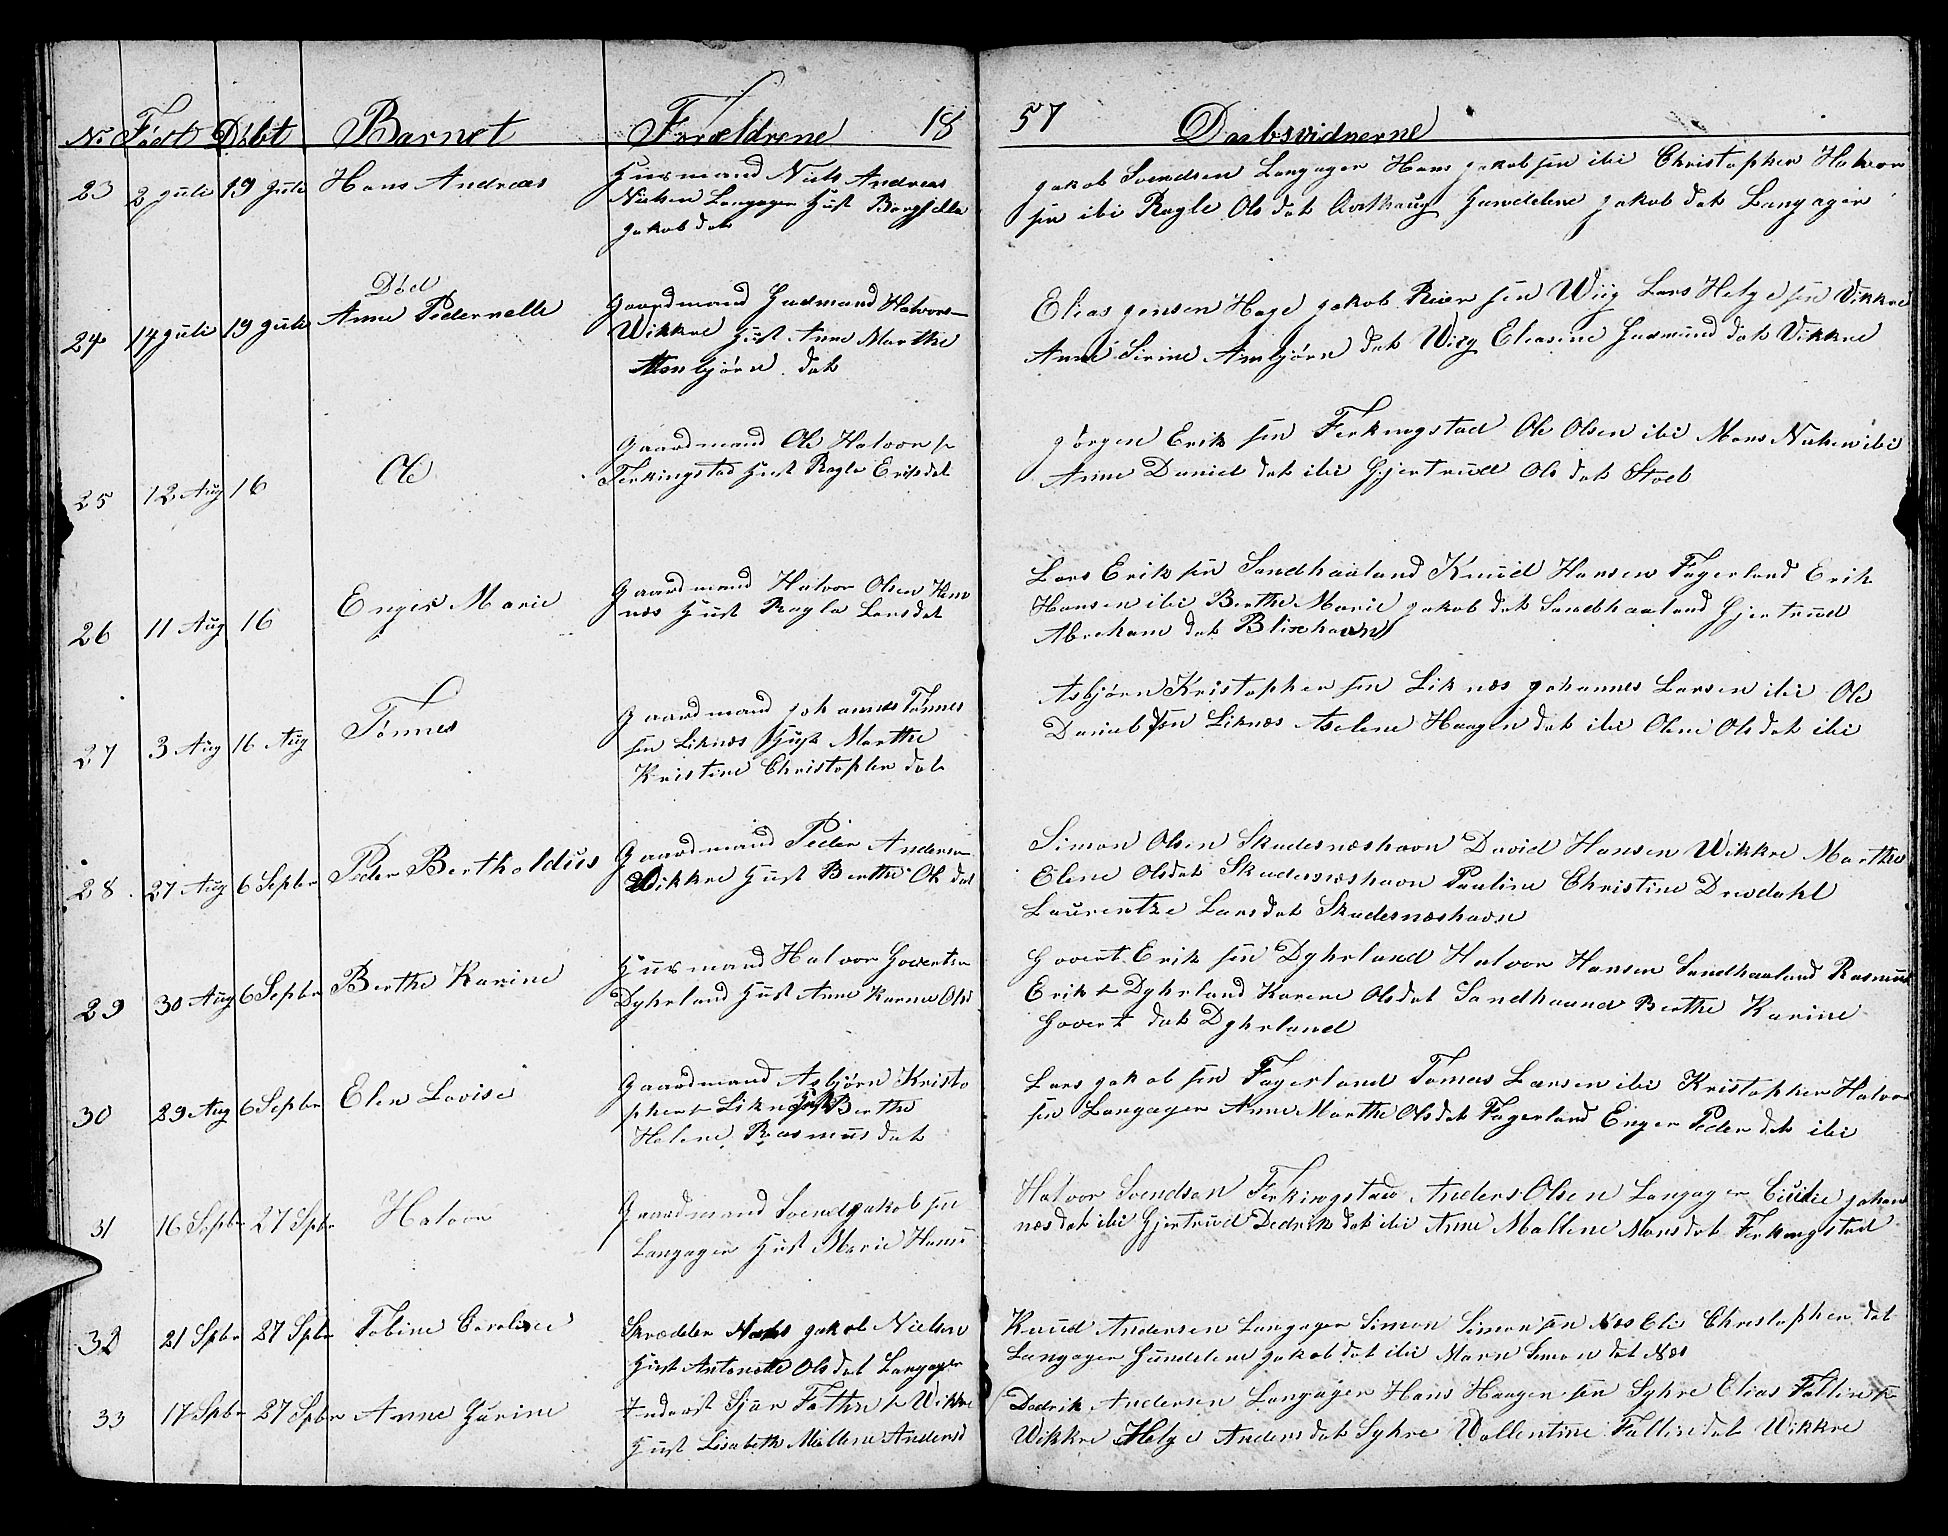 No Født Døbt Barnet Forældrene 18 57 Daabsvidnerne
23 2 Juli 19 Juli Hans Andreas Huusmand Niels Andreas
Nielsen Langager Hust
Jakob dat
Jakob Svendsen Langager Hans Jakob sen ibi Christopher Halvor
sen ibi Ragle Ols dat Gundelene Jakob dat Langager
Død
24 14 Juli 19 Juli Anne Pedernelle Gaardmand Gudmund Halvors
Wikkre Hust Anne Marthe
Asnbjørn dat
Elias Jensen Hage Jakob Reier sen Wiig Lars Helge sen Vikkre
Anne Serine Asnbjørn dat Wiig Eliasine Gudmund dat Vikkre
25 12 Aug 16 Ole Gaardmand Ole Halvor s
Ferkingstad Hust Ragle Eriksdat
Jørgen Erik sen Ferkingstad Ole Olsen ibi Mons Nielsen ibi
Anne Daniel dat ibi Gjertrud Ols dat Stoel
26 11 Aug 16 Enger Marie Gaardmand Halvor Olsen Hem
næs Hust Ragla Larsdat
Lars Erik sen Sandhaaland Knud Hansen Fagerland Erik
Hansen ibi Berthe Marie Jakob dat Sandhaaland Gjertrud
Abreham dat Blixhavn
27 3 Aug 16 Aug Tønnes Gaardmand Johannes Tønnes
sen Liknæs Hust Marthe
Kristine Christopher dat
Asbjørn Kristopher sen Liknæs Johannes Larsen ibi Ole
Daniel sen Liknæs Aselene Haagen dat ibi Olene Olsdat ibi
28 27 Aug 6 Sepbr Peder Bertholdus Gaardmand Peder Andersen
Wikkre Hust Berthe Ols dat
Simon Olsen Skudesnæshavn David Hansen Wikkre Marthe
Elene Olsdat Skudesnæshavn Pauline Christine Drevdahl
Laurentze Larsdat Skudesnæshavn
29 30 Aug 6 Sepbr Berthe Karine Huusmand Halvor Govertsen
Dyhrland Hust Anne Karine Olsd
Govert Erik sen Dyhrland Halvor Hansen Sandhaaland Rasmus
Erik s Dyhrland Karene Olsdat Sandhaaund Berthe Karine
Govert dat Dyhrland
30 29 Aug 6 Sepbr Elen Lovise Gaardmand Asbjørn Kristo
pher s Liknæs Hust Berthe
Helene Rasmus dat
Lars Jakob sen Fagerland Tomas Larsen ibi Kristopher Halvor
sen Langager Anne Marthe Olsdat Fagerland Enger Peder dat ibi
31 16 Sepbr 27 Spbr Halvor Gaardmand Svend Jakob sen
Langager Hust Marie Hans
Halvor Svendsen Ferkingstad Anders Olsen Langager Cicilie Johan
næs dat ibi Gjertrud Dedrik dat ibi Anne Mallene Monsdat Ferkingstad
32 21 Spbr 27 Spbr Tobine Caroline Skrædder Jakob Nielsen
Hust Antonette Olsdat Langager
Knud Andersen Langager Simon Simon sen Næs Eli Christopher dat
Langager Gundelene Jakob dat ibi Maren Simon dat Næs
33 17 Spbr 27 Spbr Anne Jurine Inderst Sjur Fallin s Wikkre
Hust Lisabeth Mallene Andersd
Dedrik Andersen Langager Hans Haagen sen Syhre Elias Fallin s
Wikkre Helge Anders dat Syhre Wallentine Fallinedat Wikkre